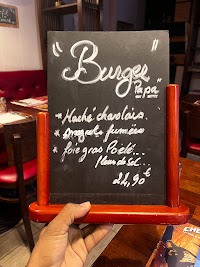 "Burger"
Papa
* Haché charolais.
* magret fumées
* foie gras Poêlé...
fleur de sel...
22,90€